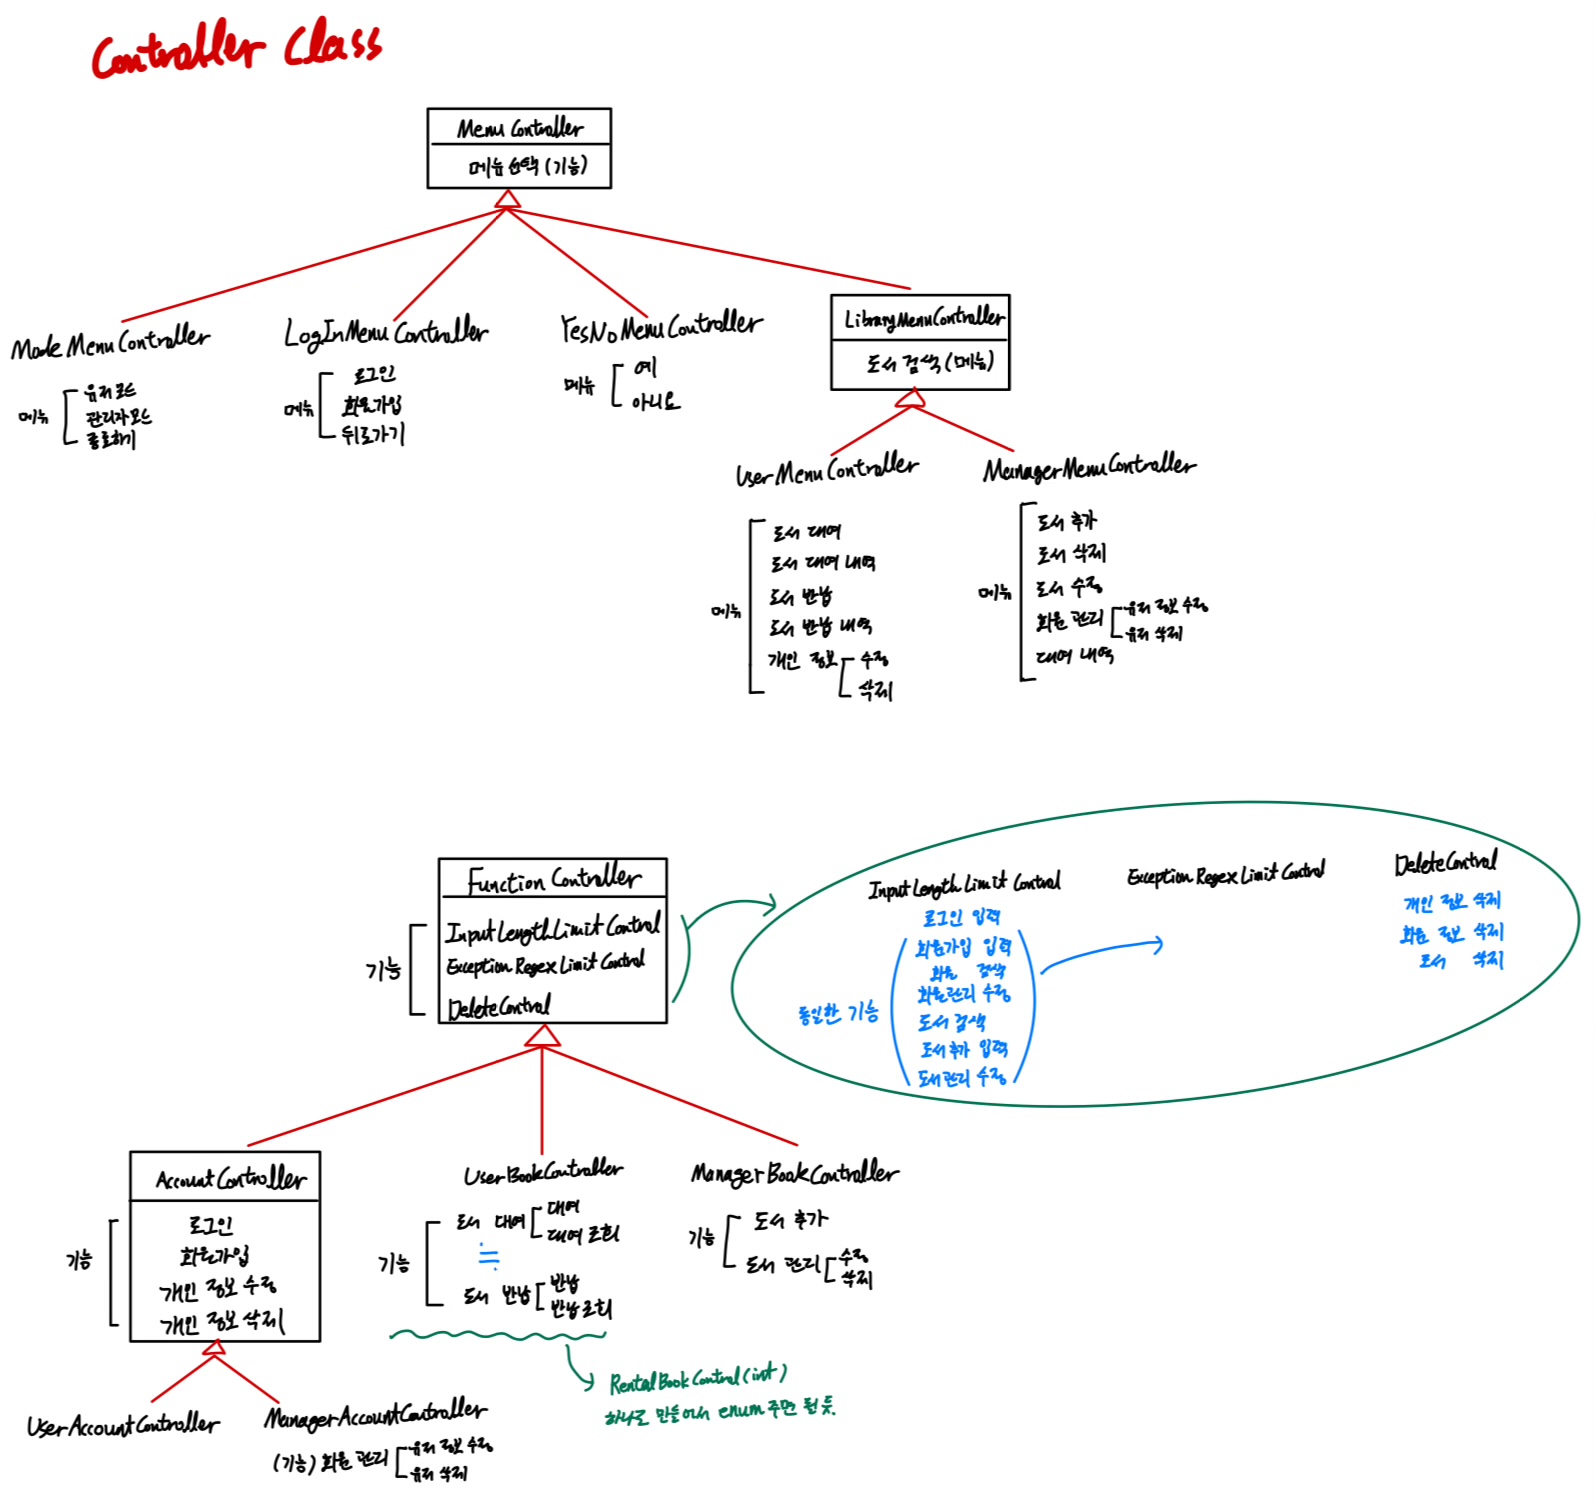 Controller Class
Menu Controller
메뉴 선택 (기능)
Mode Menu Controller
메뉴
유저 모드
관리자 모드
종료하기
LogIn Menu Controller
메뉴
로그인
회원가입
뒤로가기
YesNo Menu Controller
메뉴
예
아니요
LibraryMenuController
도서 검색 (메뉴)
User Menu Controller
메뉴
도서 대여
도서 대여 내역
도서 반납
도서 반납 내역
개인 정보
수정
삭제
ManagerMenuController
메뉴
도서 추가
도서 삭제
도서 수정
회원 관리
유저 정보 수정
유저 삭제
대여 내역
Function Controller
기능
InputLengthLimit Control
Exception Regex Limit Control
DeleteControl
InputLengthLimit Control
로그인 입력
동일한 기능
회원가입 입력
회원 검색
회원관리 수정
도서 검색
도서추가 입력
도서관리 수정
Exception Regex Limit Control
DeleteControl
개인 정보 삭제
회원 정보 삭제
도서 삭제
AccountController
기능
로그인
회원가입
개인 정보 수정
개인 정보 삭제
UserAccountController
ManagerAccountController
(기능) 회원 관리
유저 정보 수정
유저 삭제
UserBookController
기능
도서 대여
대여
대여 조회
≒
도서 반납
반납
반납 조회
RentalBookControl(int)
하나로 만들어서 enum 주면 될 듯.
ManagerBookController
기능
도서 추가
도서 관리
수정
삭제